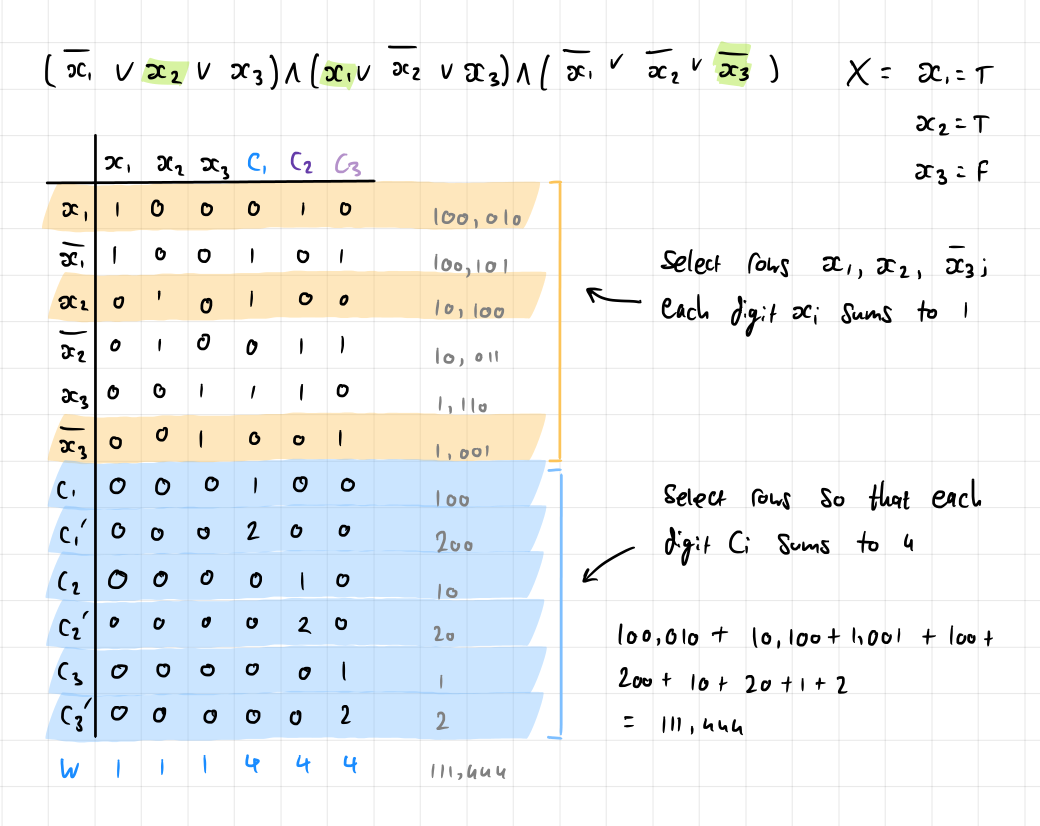 ( x̅₁ ∨ x₂ ∨ x₃ ) ∧ ( x₁ ∨ x̅₂ ∨ x₃ ) ∧ ( x̅₁ ∨ x̅₂ ∨ x̅₃ )
X = x₁ = T
x₂ = T
x₃ = F
x₁ x₂ x₃ C₁ C₂ C₃
x₁ 1 0 0 0 1 0 100,010
x̅₁ 1 0 0 1 0 1 100,101
x₂ 0 1 0 1 0 0 10,100
x̅₂ 0 1 0 0 1 1 10,011
x₃ 0 0 1 1 1 0 1,110
x̅₃ 0 0 1 0 0 1 1,001
C₁ 0 0 0 1 0 0 100
C₁′ 0 0 0 2 0 0 200
C₂ 0 0 0 0 1 0 10
C₂′ 0 0 0 0 2 0 20
C₃ 0 0 0 0 0 1 1
C₃′ 0 0 0 0 0 2 2
W 1 1 1 4 4 4 111,444
Select rows x₁, x₂, x̅₃;
each digit xᵢ sums to 1
Select rows so that each
digit Cᵢ sums to 4
100,010 + 10,100 + 1,001 + 100 +
200 + 10 + 20 + 1 + 2
= 111,444